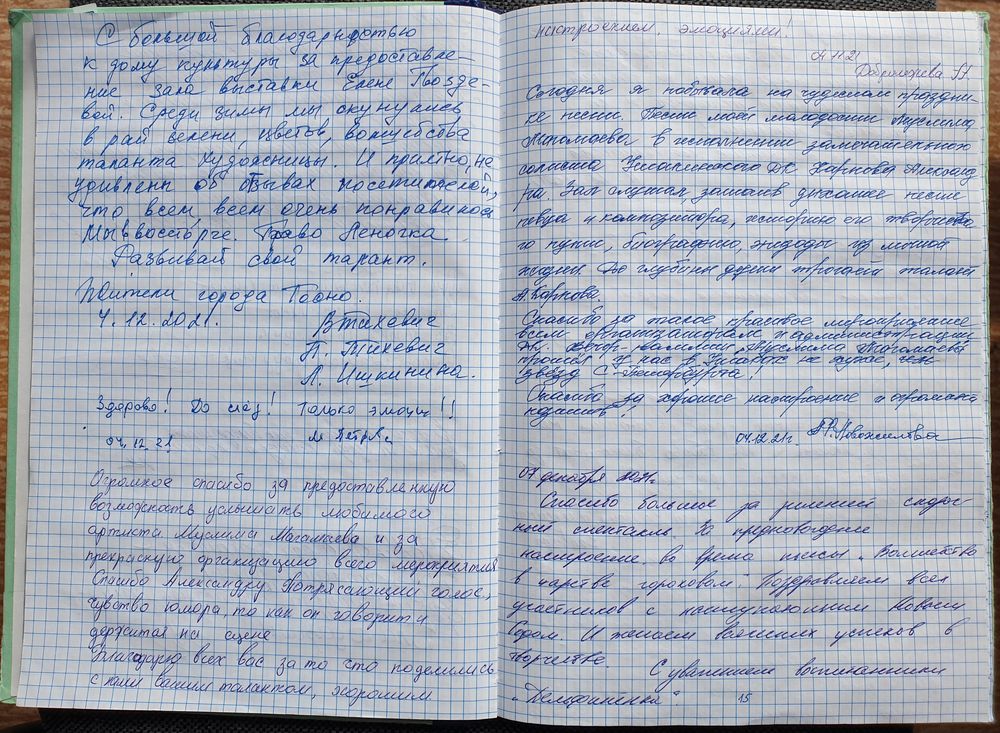 С большой благодарностью
к дому культуры за предоставле-
ние зала выставки Елене Гвозде-
вой. Среди зимы мы окунулись
в рай зелени, цветов, волшебства
таланта художницы. И приятно, не
удивлены об отзывах посетителей,
что всем, всем очень понравилось
Мы в восторге. Браво Леночка.
Развивай свой талант.
Жители города Тосно.
4.12.2021.
В Тихевич
П. Тихевич
Л. Ишкинина.
Здорово! До слёз! Только эмоции!!
04.12.21
Огромное спасибо за предоставленную
возможность услышать любимого
артиста Муслима Магомаева и за
прекрасную организацию всего мероприятия
Спасибо Александру. Потрясающий голос,
чувство юмора, то как он говорит и
держится на сцене
Благодарю всех вас за то что поделились
с нами вашим талантом, хорошим
настроением, эмоциями!
04 12 21
Сегодня я побывала на чудесном праздни-
ке песни. Песни моей молодости Муслима
Магомаева в исполнении замечательного
солиста ДК Карпова Александ
ра. Зал слушал, затаив дыхание песни
певца и композитора, историю его творческо
го пути, биографию, эпизоды из личной
жизни. До глубины души трогает талант
А. Карпова.
Спасибо за такое красивое мероприятие
всем организаторам и администрации
ДК. Вечер памяти Муслима Магомаева
прошёл у нас в не хуже, чем
звёзд С-Петербурга!
Спасибо за хорошее настроение и
04.12.21г.
07 декабря 2021г
Спасибо большое за
спектакль. За предновогоднее
настроение во время пьесы „Волшебство
в царстве гороховом“ Поздравляем всех
участников с наступающим Новым
Годом. И желаем всяческих успехов в
творчестве.
С уважением воспитанники
15